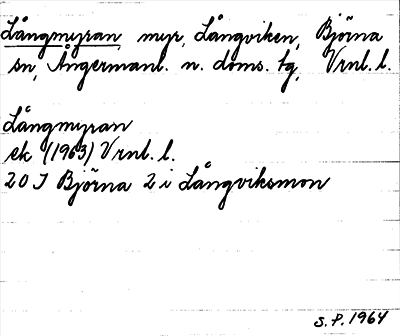 Långmyran, myr, Långviken, Björna
sn, Ångermanl. n. doms. tg, Vrnl. l.
Långmyran
ek (1963) Vrnl. l.
20 J Björna 2 i Långviksmon
S. P. 1964